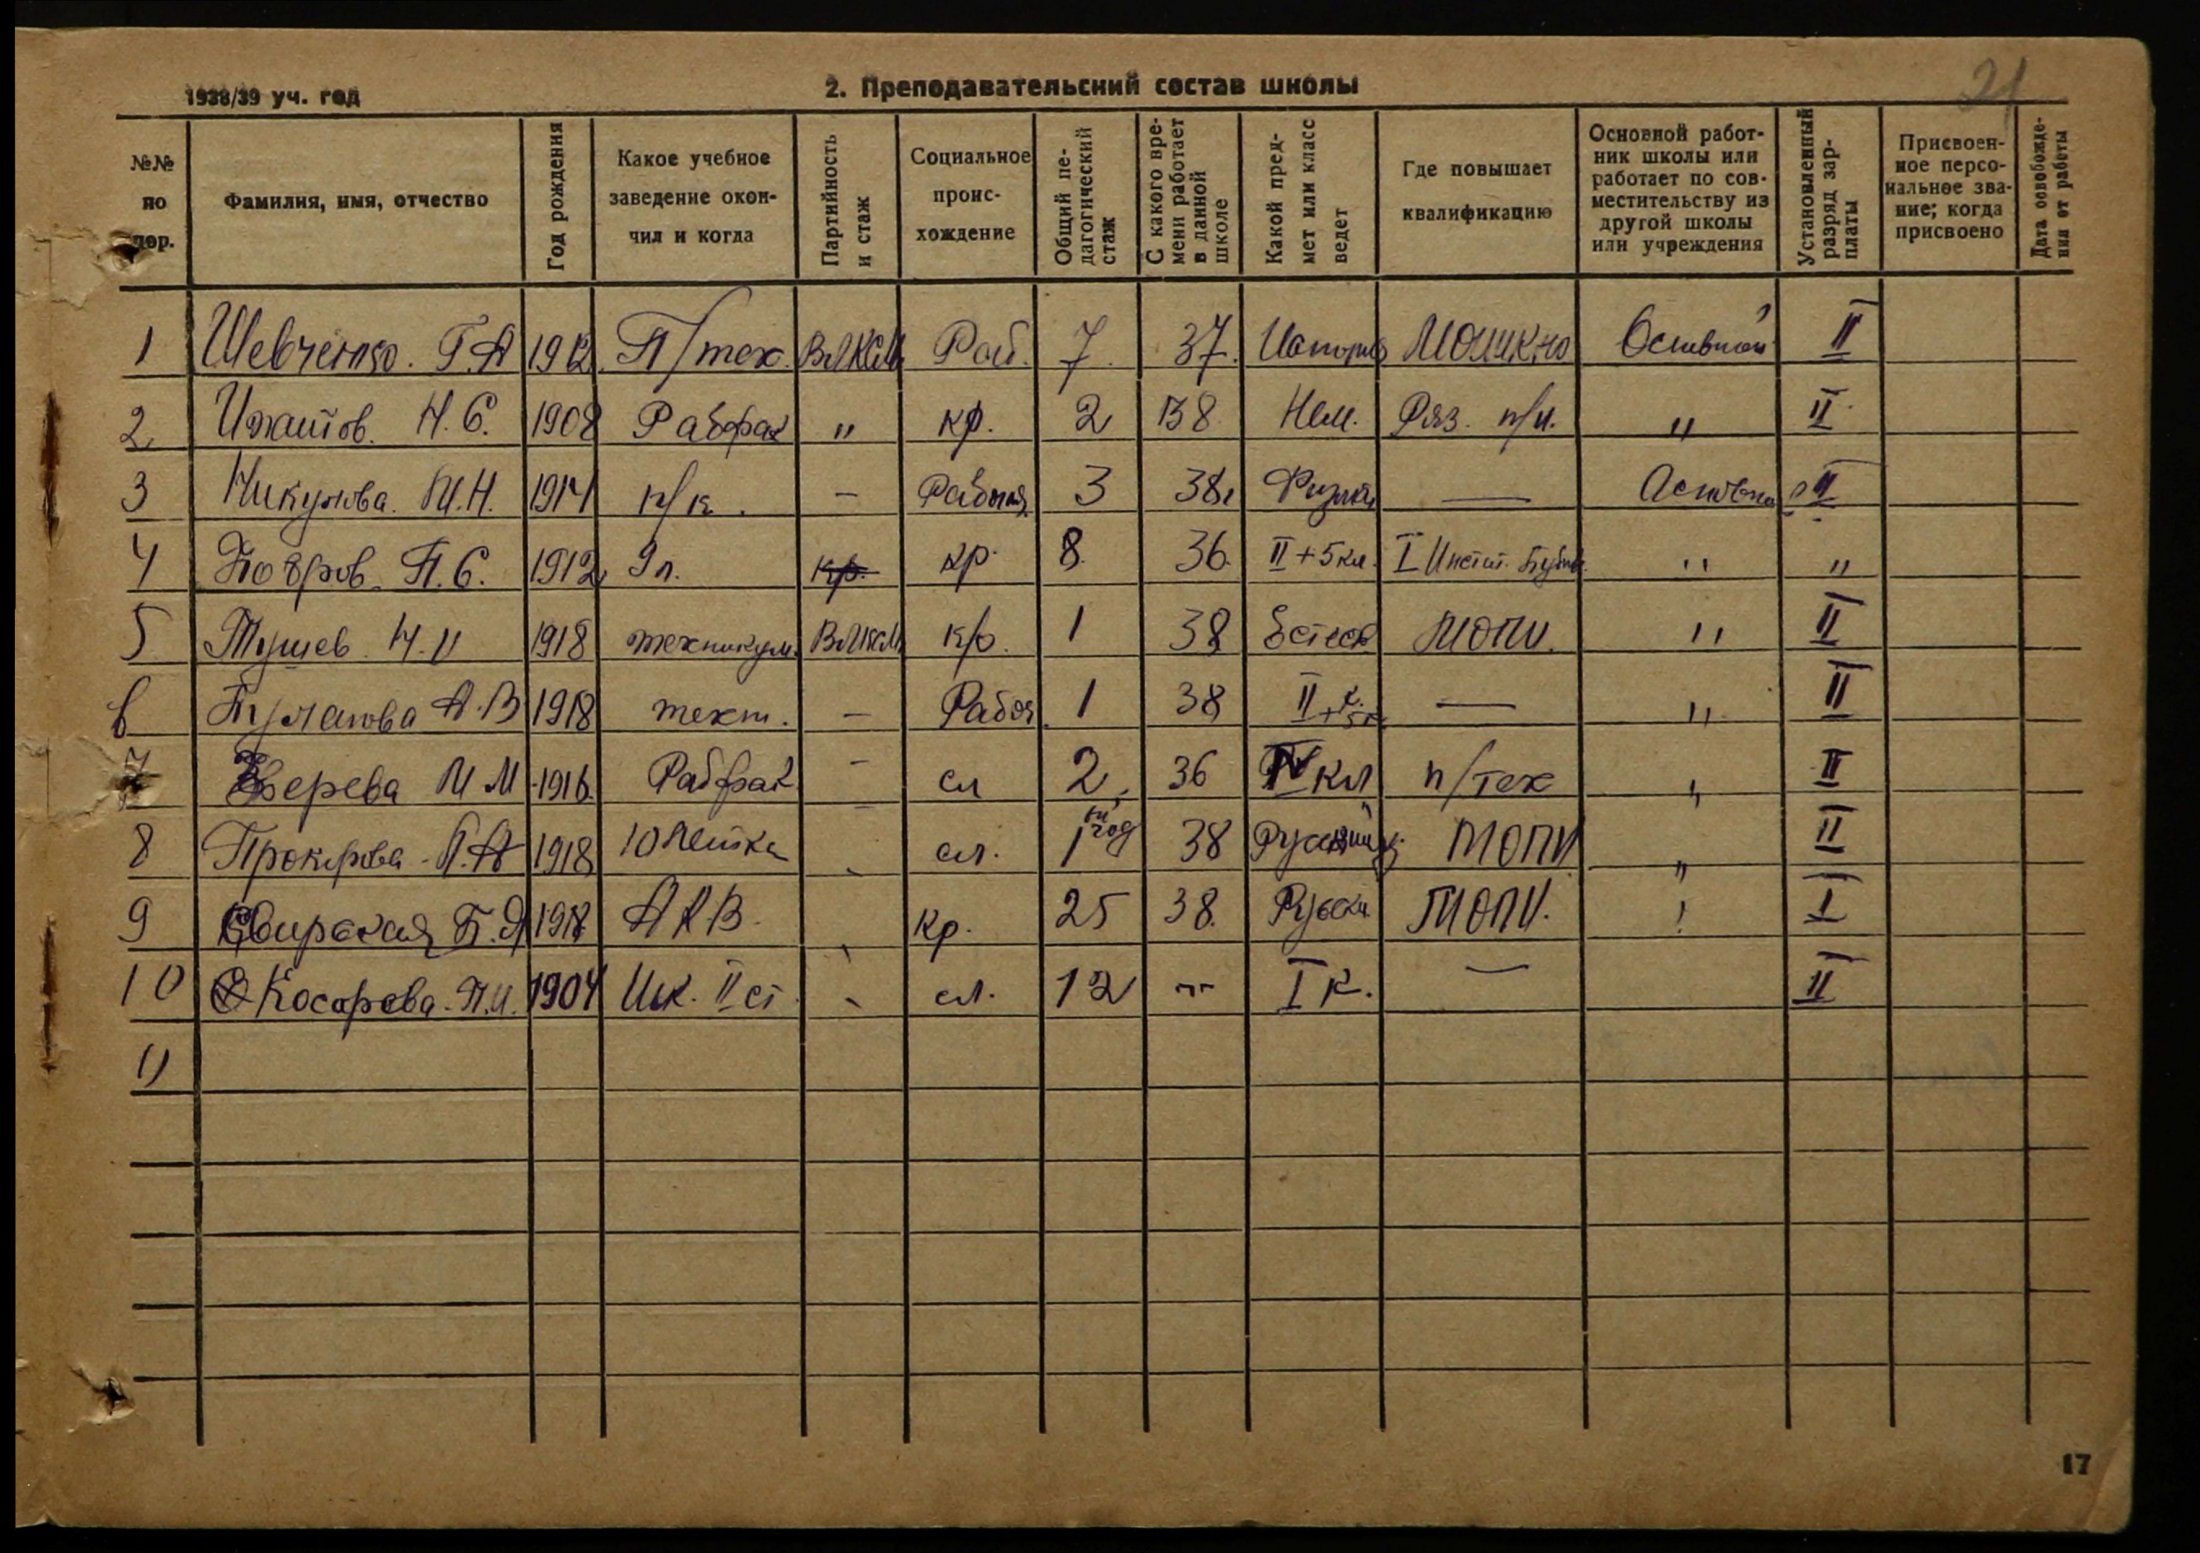 21
1938/39 уч. год
2. Преподавательский состав школы
№№ по пор.
Фамилия, имя, отчество
Год рождения
Какое учебное заведение окончил и когда
Партийность и стаж
Социальное происхождение
Общий педагогический стаж
С какого времени работает в данной школе
Какой предмет или класс ведет
Где повышает квалификацию
Основной работник школы или работает по совместительству из другой школы или учреждения
Установленный разряд зарплаты
Присвоенное персональное звание; когда присвоено
Дата освобождения от работы
1 Шевченко. Г.А 1912 П/тех. ВЛКСМ Раб. 7. 37. II
2 Н.С. 1908 Рабфак " кр. 2 38. Нем. Ряз. п/и. " II
3 Никулова. М.Н. 1914 п/к. — Рабочая 3 38 — II
4 Бобров П.С. 1912 9л. кр. кр. 8. 36. II + 5 кл. I Инст. " "
5 Тушев Н.И 1918 техникум. ВЛКСМ к/р. 1 38 Естеств МОПИ. " II
6 А.В 1918 техн. — Рабоч. 1 38 II к. + 5 к. — " II
7 Зверева М М 1916. Рабфак — сл 2 36 IV кл п/тех " II
8 А.А 1918 10 летка сл. 1 год 38 Русский МОПИ " II
9 Свирская Б.Я 1918 кр. 25 38. Русский МОПИ. I
10 Косарева П.И. 1904 Шк. II ст сл. 12 -"- I к. — II
11
17